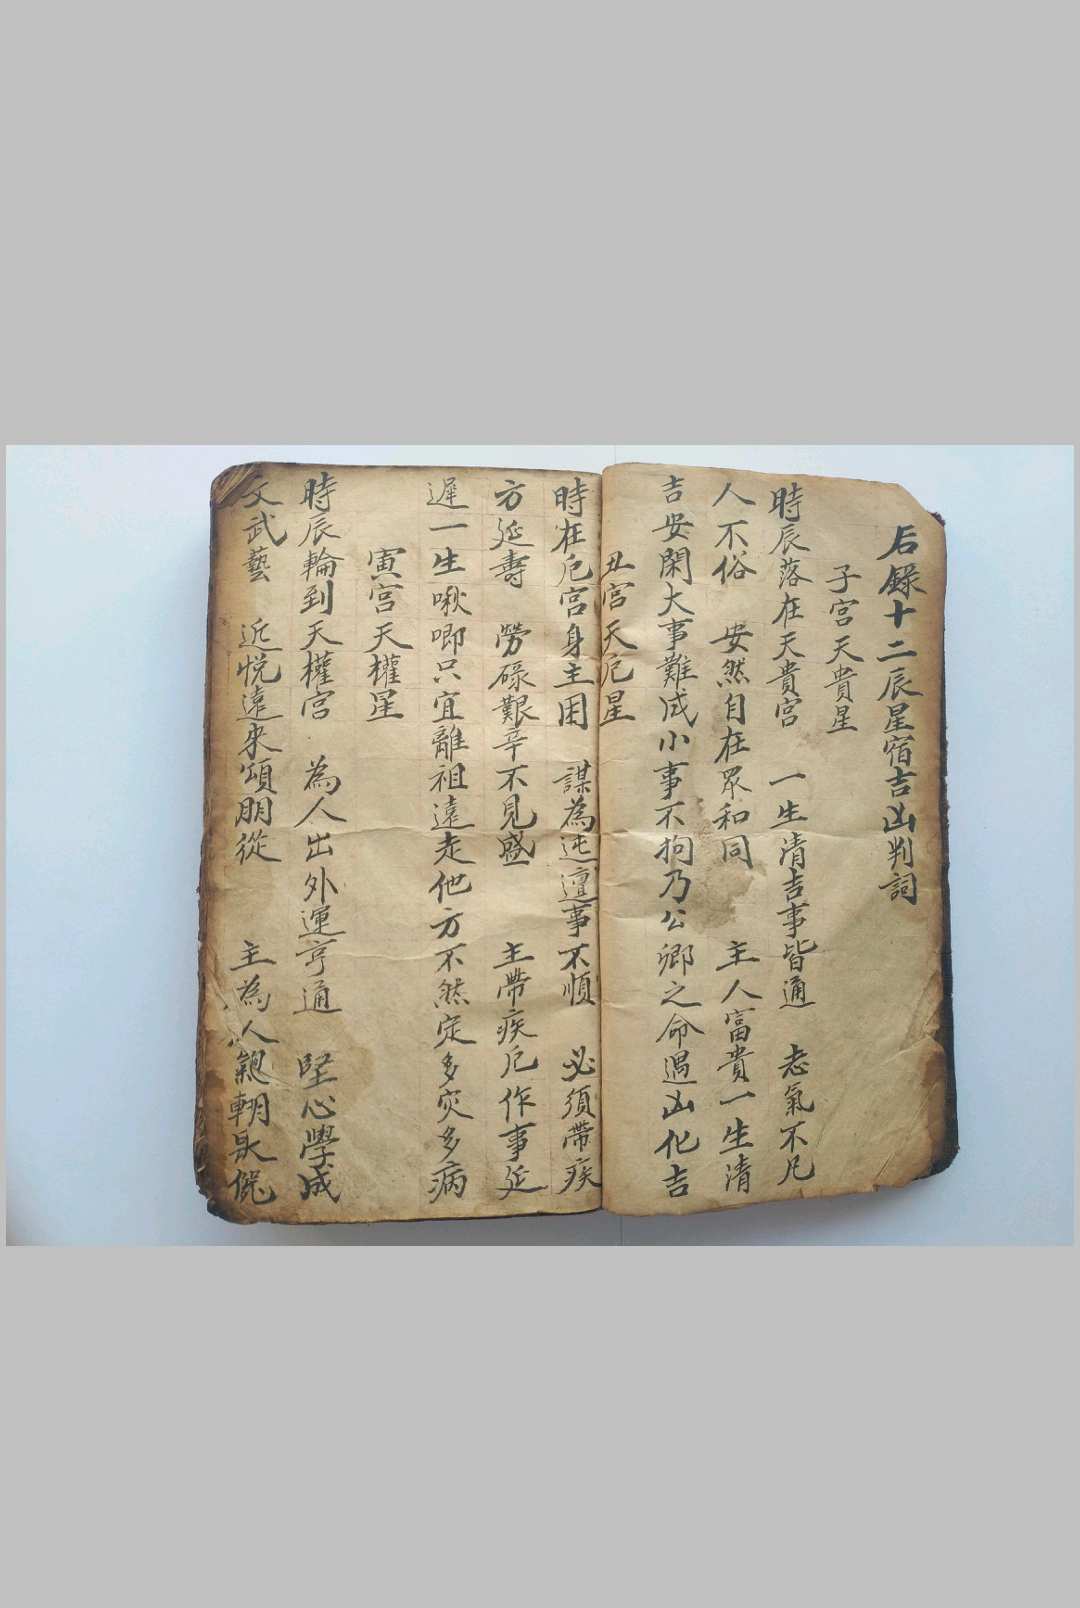 后錄十二辰星宿吉凶判詞
子宫天貴星
時辰落在天貴宫 一生清吉事皆通 志氣不凡
人不俗 安然自在眾和同 主人富貴一生清
吉安閑大事難成小事不拘乃公卿之命遇凶化吉
丑宫天厄星
時在厄宫身主困 謀為迍邅事不順 必須帶疾
方延壽 勞碌艱辛不見盛 主帶疾厄作事延
遲一生啾唧只宜離祖遠走他方不然定多灾多病
寅宫天權星
時辰輪到天權宫 為人出外運亨通 堅心學成
文武藝 近悅遠來頌朋從 主為人